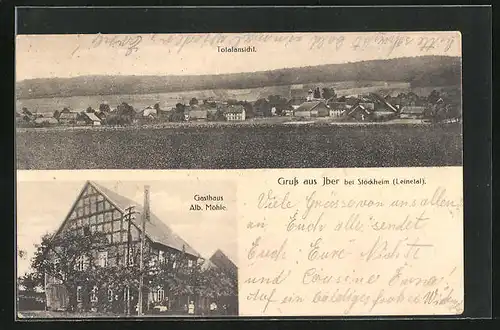 Totalansicht.
Gruß aus Iber bei Stöckheim (Leinetal).
Gasthaus
Alb. Möhle.
Viele Grüsse von uns allen
an Euch alle sendet
Euch Eure
und Cousine Erna
Auf ein baldiges frohes